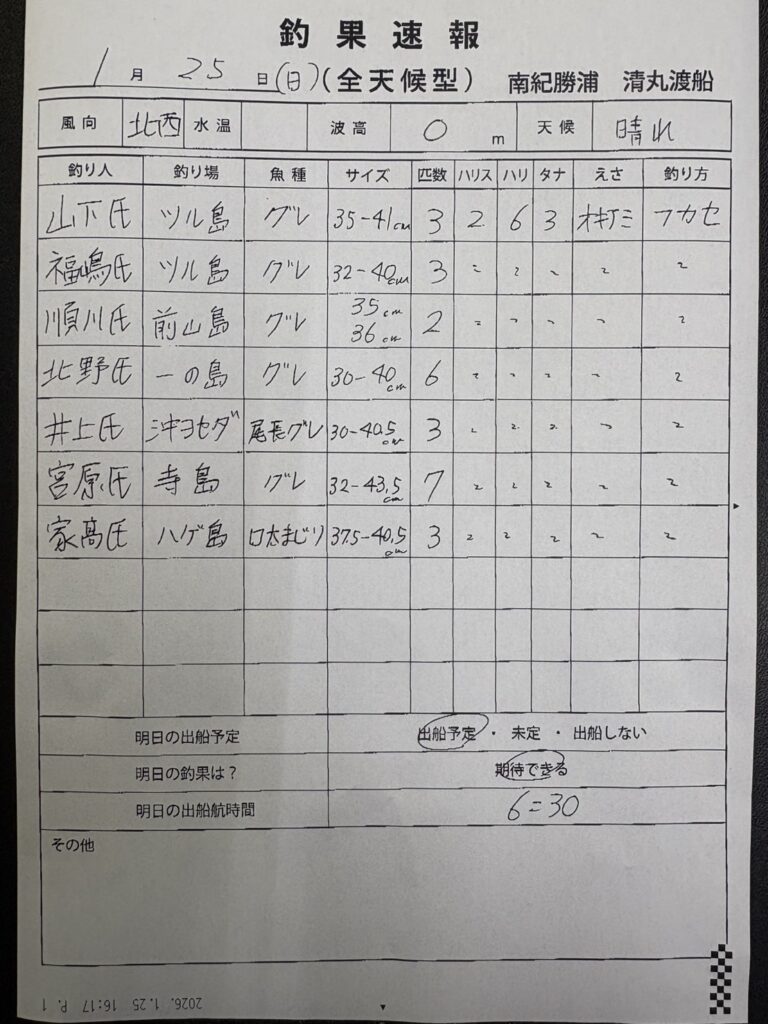 釣果速報
1月25日(日)(全天候型) 南紀勝浦 清丸渡船
風向 北西 水温 波高 0 m 天候 晴れ
釣り人 釣り場 魚種 サイズ 匹数 ハリス ハリ タナ えさ 釣り方
山下氏 ツル島 グレ 35-41cm 3 2 6 3 オキアミ フカセ
福嶋氏 ツル島 グレ 32-40cm 3 〃 〃 〃 〃 〃
順川氏 前山島 グレ 35cm 36cm 2 〃 〃 〃 〃 〃
北野氏 一の島 グレ 30-40cm 6 〃 〃 〃 〃 〃
井上氏 沖ヨセダ 尾長グレ 30-40.5cm 3 〃 〃 〃 〃 〃
宮原氏 寺島 グレ 32-43.5cm 7 〃 〃 〃 〃 〃
家高氏 ハゲ島 口太まじり 37.5-40.5cm 3 〃 〃 〃 〃 〃
明日の出船予定 出船予定・未定・出船しない
明日の釣果は? 期待できる
明日の出船航時間 6=30
その他
2026. 1.25 16:17 P. 1